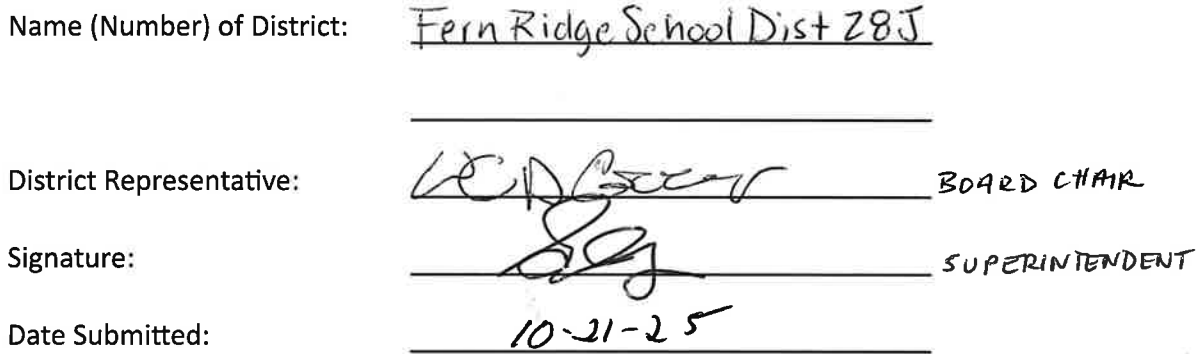 Name (Number) of District: Fern Ridge School Dist 28J
District Representative: BOARD CHAIR
Signature: SUPERINTENDENT
Date Submitted: 10-21-25